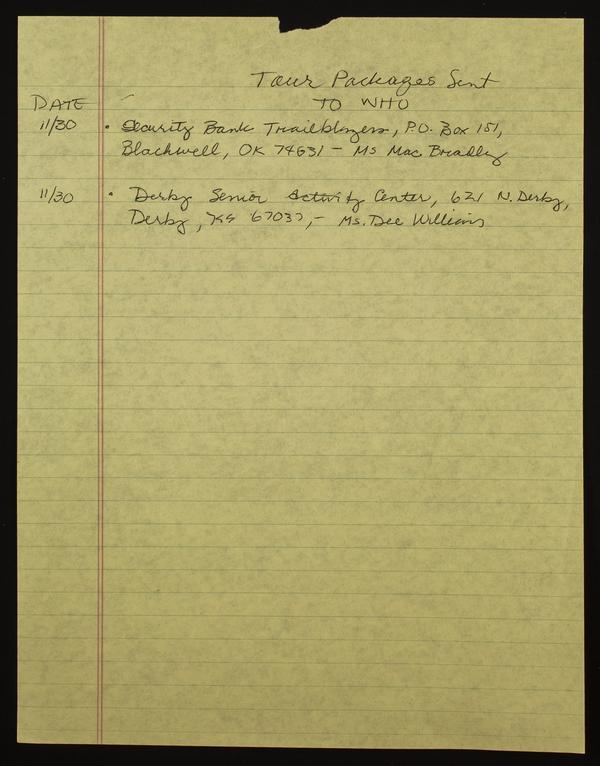 Tour Packages Sent
TO WHO
DATE
11/30 • Security Bank Trailblazers, P.O. Box 151,
Blackwell, OK 74631 - Ms Mac Bradley
11/30 • Derby Senior Activity Center, 621 N. Derby,
Derby, KS 67037, - Ms. Dee Williams